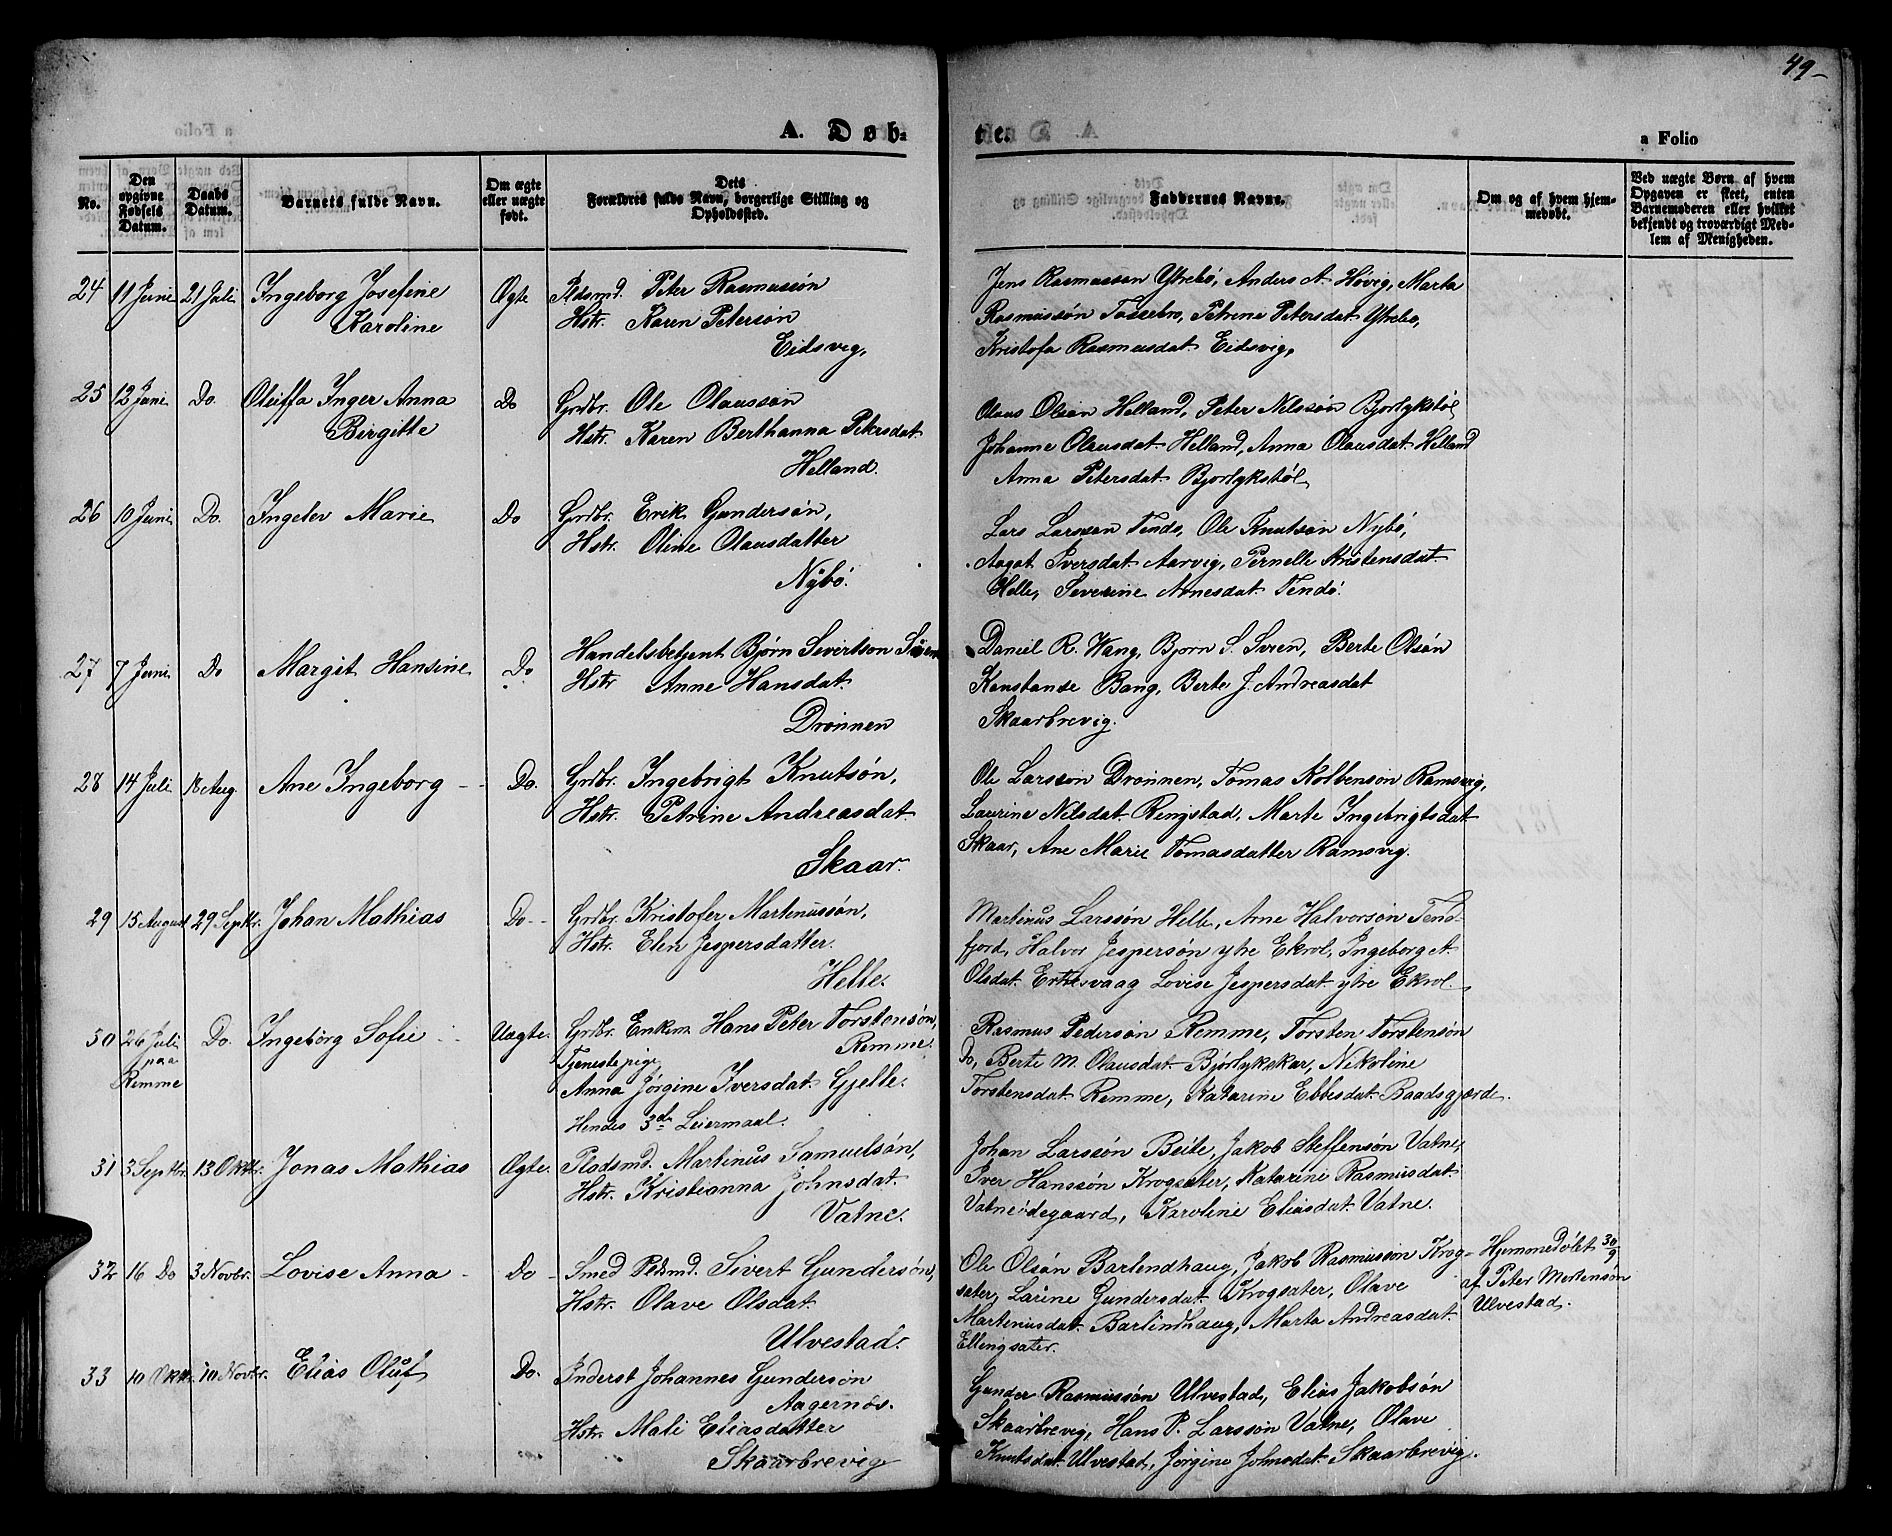 49-
A. Døb-
te.
a Folio
No.
Den opgivne Fødsels Datum.
Daabs Datum.
Barnets fulde Navn.
Om ægte eller uægte født.
Dets Forældres fulde Navn, borgerlige Stilling og Opholdssted.
Faddernes Navne.
Om og af hvem hjemmedøbt.
Ved uægte Børn af hvem Opgaven er skeet, enten Barnemoderen eller hvilket bekjendt og troværdigt Medlem af Menigheden.
24 11 Juni 21 Juli Ingeborg Josefine Ægte Pldsmd. Peter Rasmussøn
Karoline Hstr. Karen Petersøn
Eidsvig,
Jens Rasmussøn Ytrebø, Anders A. Høvig, Marta
Rasmussøn Tossebro, Petrine Petersdat Ytrebø,
Kristofa Rasmusdat. Eidsvig,
25 12 Juni Do. Oleiffa Inger Anna Do Grdbr. Ole Olaussøn
Birgitte Hstr. Karen Berthanna Petersdat
Helland.
Olaus Olsøn Helland, Peter Nilssøn Bjorlykstøl
Johanne Olausdat. Helland, Anna Olausdat. Helland
Anna Petersdat. Bjorlykstøl,
26 10 Juni Do. Ingelev Marie Do Grdbr. Erik Gundersøn,
Hstr. Oline Olausdatter
Nybø.
Lars Larssøn Tendø, Ole Knutsøn Nybø,
Aagot Iversdat. Aarvig, Pernelle Kristensdat.
Helle, Severine Arnesdat. Tendø.
27 7 Juni Do Margit Hansine Do Handelsbetjent Bjørn Sivertson
Hstr Anne Hansdat.
Drønnen
Daniel R. Wang, Bjørn S. Søren, Berte Olsøn
Konstanse Bang, Berte J. Andreasdat
Skaarbrevig.
28 14 Juli 18 Aug. Ane Ingeborg - - Do. Grdbr. Ingebrigt Knutsøn,
Hstr. Petrine Andreasdat.
Skaar.
Ole Larssøn Drønnen, Tomas Kolbensøn Ramsvig,
Laurine Nilsdat. Ringstad, Marte Ingebrigtsdat
Skaar, Ane Marie Tomasdatter Ramsvig.
29 15 August 29 Septbr. Johan Mathias Do - - Grdbr. Kristofer Martinussøn,
Hstr. Elen Jespersdatter.
Helle.
Martinus Larssøn Helle, Arne Halvorsøn Tend-
fjord, Halvor Jespersøn ytre Ekrol, Ingeborg A.
Olsdat. Erknesvaag Lovise Jespersdat. ytre Ekrol.
30 26 Juli Do. Ingebørg Sofie Uægte. Grdbr. Enkm. Hans Peter Torstensøn,
paa Remme Remme.
Tjenestepige
Anna Jørgine Iversdat. Gjelle.
Hendes 3de Leiermaal.
Rasmus Pedersøn Remme, Torsten Torstensøn
Do, Berte M. Olausdat. Bjorlykskar, Nikoline
Torstensdat. Remme, Katarine Ebbesdat. Baadsgjærde.
31 3 Septbr. 13 Oktbr. Jonas Mathias Ægte. Pladsmd. Martinus Samuelsøn,
Hstr. Kristianna Johnsdat.
Vatne.
Johan Larssøn Beite, Jakob Steffensøn Vatne,
Iver Hanssøn Krogsæter, Katarine Rasmusdat.
Vatneødegaard, Karoline Eliasdat. Vatne.
32 16 Do 3 Novbr. Lovise Anna - Do - Smed Pldsmd. Sivert Gundersøn,
Hstr. Olave Olsdat.
Ulvestad.
Ole Olsøn Barlindhaug, Jakob Rasmussøn Krog-
sæter, Larine Gundersdat. Krogsæter, Olave
Martinusdat. Barlindhaug, Marta Andreasdat.
Ellingsæter.
Hjemmedøbt 30/9
af Peter Mortensøn
Ulvestad.
33 10 Oktbr. 10 Novbr. Elias Oluf Do. Inderst Johannes Gundersøn
Aagernøs.
Hstr. Mali Eliasdatter
Skaarbrevig
Gunder Rasmussøn Ulvestad, Elias Jakobsøn
Skaarbrevig, Hans P. Larssøn Vatne, Olave
Knutsdat. Ulvestad, Jørgine Johnsdat. Skaarbrevig.